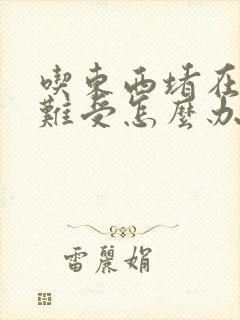 喫東西堵在
難受怎麼办
雷麗娟